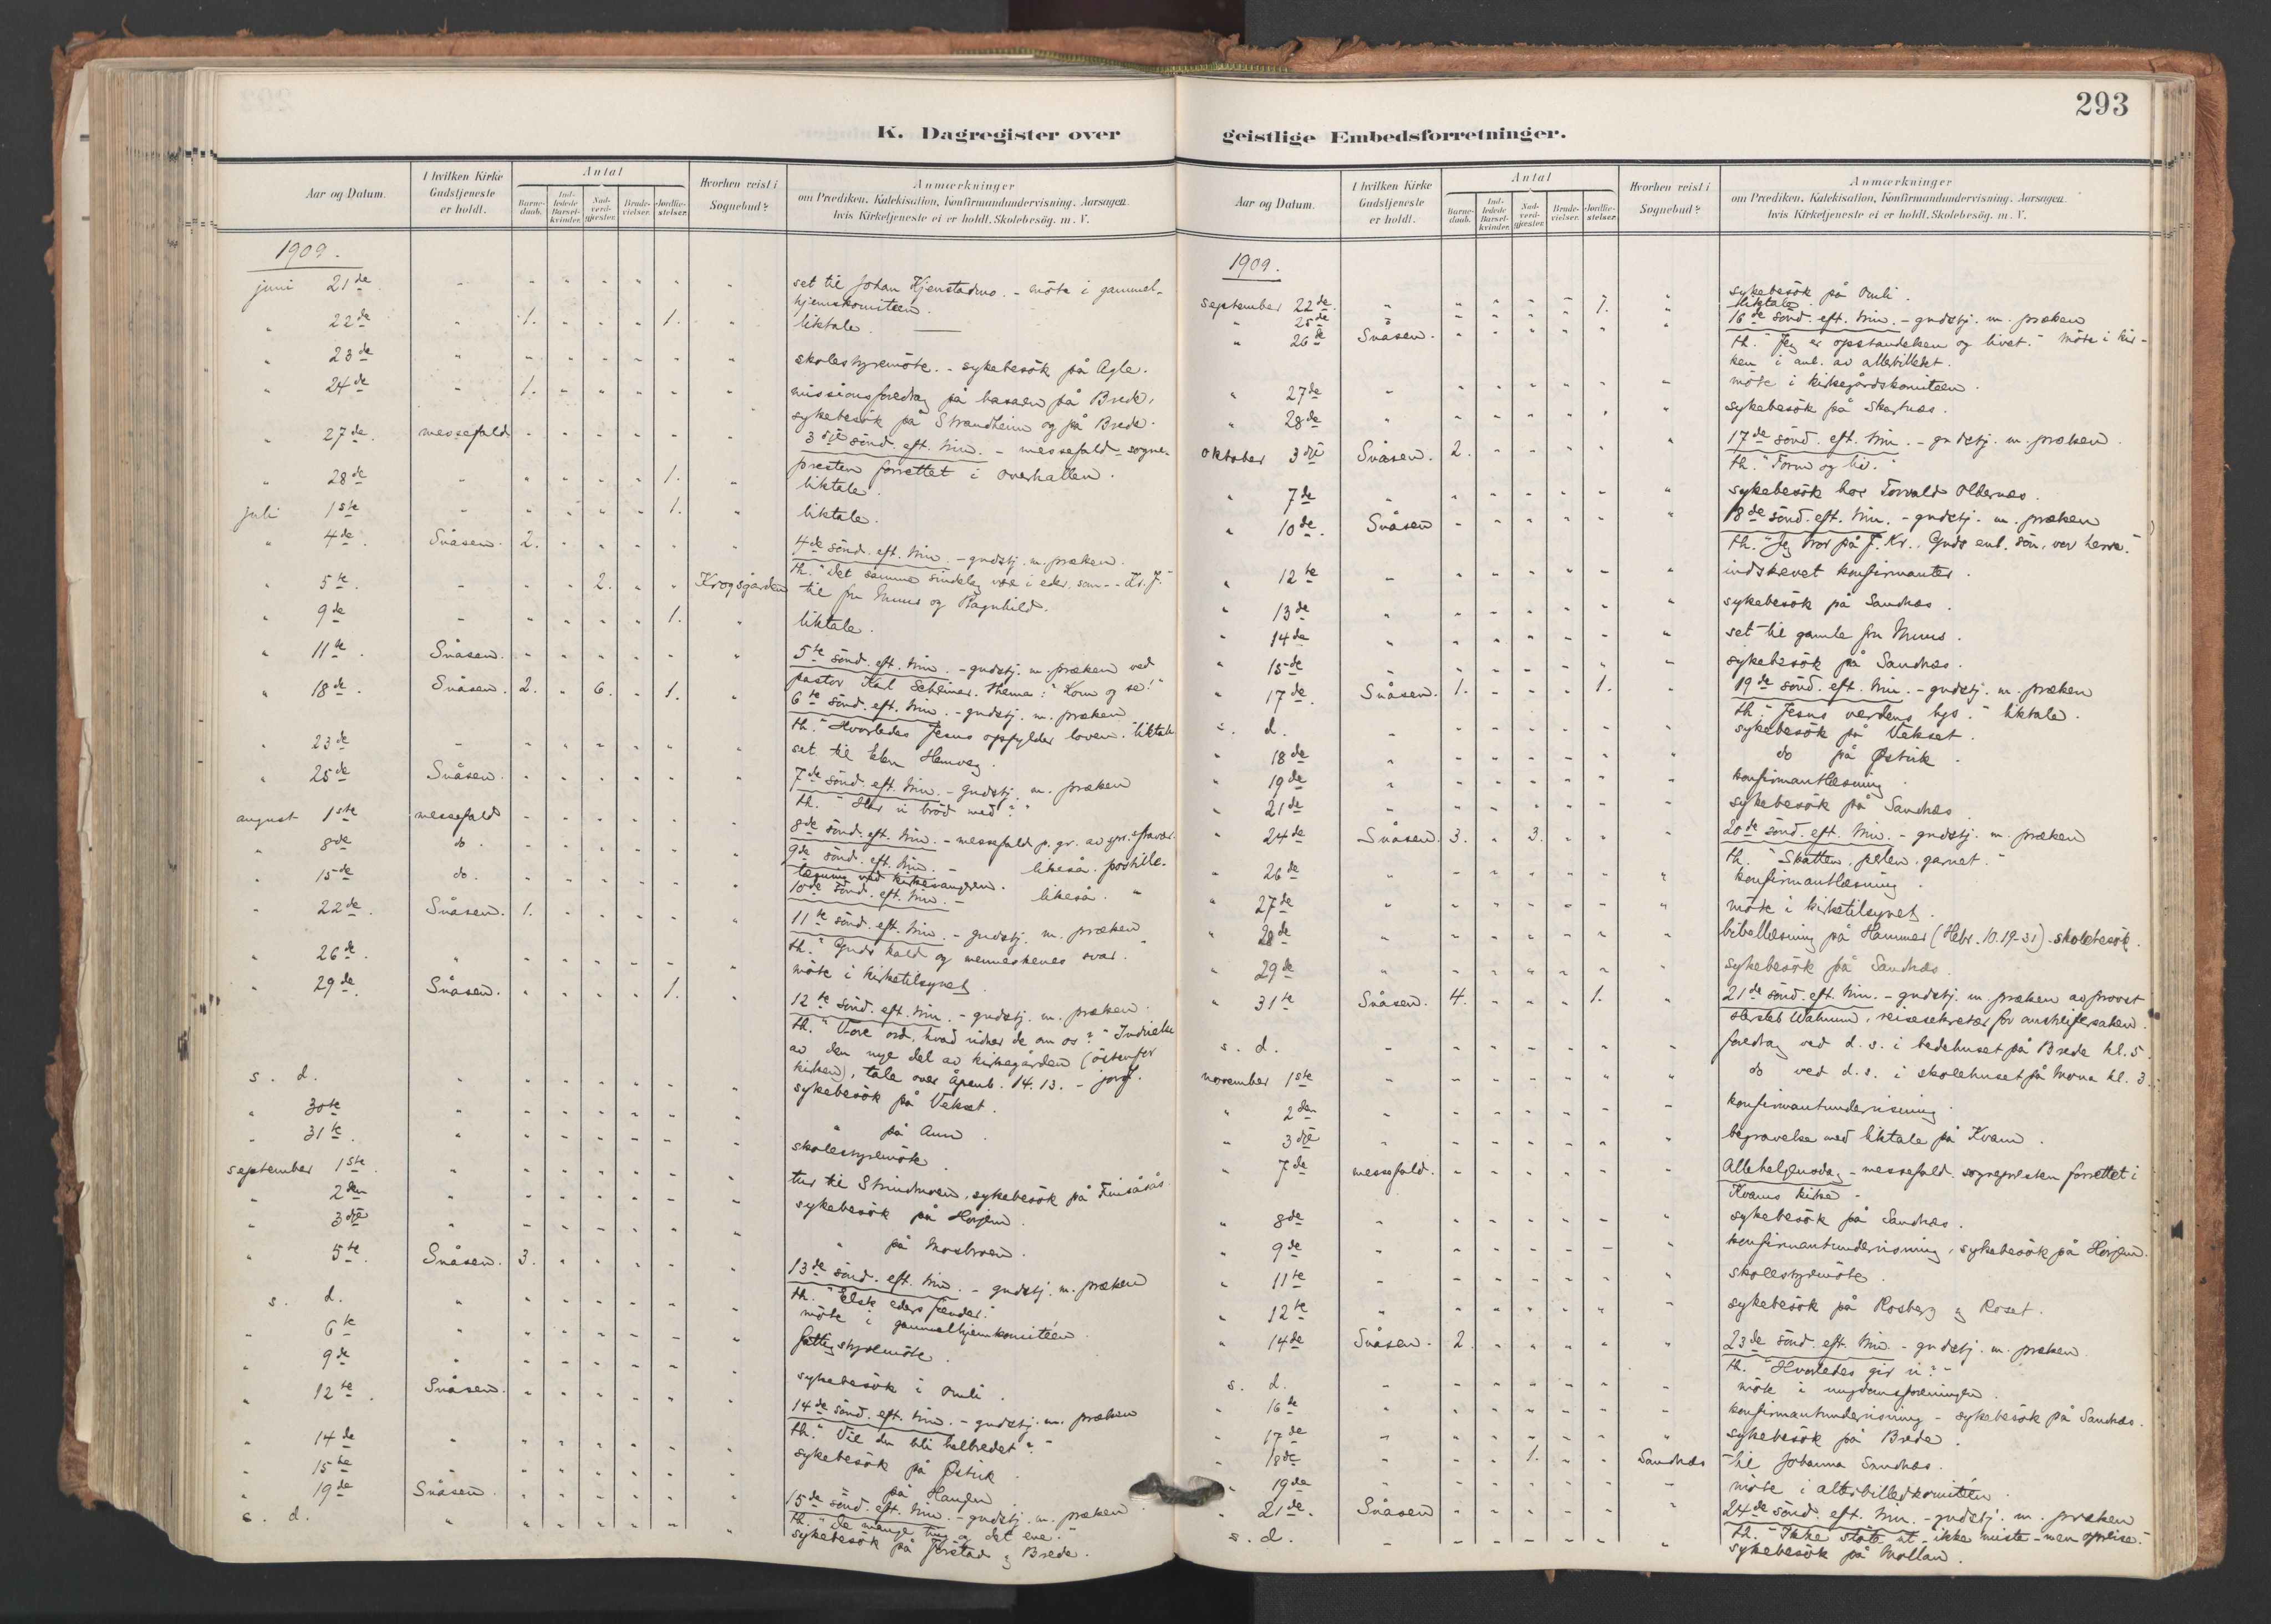 293
K. Dagregister over geistlige Embedsforretninger.
Aar og Datum. I hvilken Kirke Gudstjeneste er holdt. Antal Barnedaab. Indledede Barselkvinder. Nadverdgjæster. Brudevielser. Jordfæstelser. Hvorhen reist i Sognebud? Anmærkninger om Prædiken, Katekisation, Konfirmandundervisning, Aarsagen hvis Kirketjeneste ei er holdt. Skolebesøg. m. V.
1909.
juni 21de set til Johan Kjenstadmo. - möte i gammel-
hjemskomiteen.
" 22de 1. 1. liktale.
" 23de skolestyremöte. - sykebesök på Agle.
" 24de 1. missionsforedrag på basaren på Brede,
sykebesök på Strandheim og på Brede.
" 27de messefald 3dje sönd. eft. trin. - messefald - sogne-
presten forrettet i Overhallen.
" 28de 1. liktale.
juli 1ste 1. liktale.
" 4de Snåsen. 2. 4de sönd. eft. trin. - gudstj. m. præken.
th. "Det samme sindelag være i eder, som - - Kr. J."
" 5te 2. Krogsgården til fru Muus og Ragnhild.
" 9de 1. liktale.
" 11te Snåsen. 5te sönd. eft. trin. - gudstj. m. præken ved
pastor Karl Schriner. Thema: "Kom og se!"
" 18de Snåsen. 2. 6. 1. 6te sönd. eft. trin. - gudstj. m. præken
th. "Hvorledes Jesus opfylder loven." liktale
" 23de set til Hamveg.
" 25de Snåsen. 7de sönd. eft. trin. - gudstj. m. præken
th. "Har vi bröd med?"
august 1ste messefald 8de sönd. eft. trin. - messefald p. gr. av spr. fravær.
" 8de do. 9de sönd. eft. trin. - likeså. postille-
læsning ved kirkesangeren.
" 15de do. 10de sönd. eft. trin. - likeså. "
" 22de Snåsen. 1. 11te sönd. eft. trin. - gudstj. m. præken
th. "Guds kald og menneskenes svar."
" 26de möte i kirketilsynet.
" 29de Snåsen. 1. 12te sönd. eft. trin. - gudstj. m. præken
th. "Vore ord, hvad vidner de om os?" Indvielse
av den nye del av kirkegården (östenfor
kirken), tale over Åpenb. 14.13. - jordf.
s. d. sykebesök på Vekset.
" 30te " på Aun.
" 31te skolestyremöte.
september 1ste tur til Strindmoen, sykebesök på Finsåsås.
" 2den sykebesök på Horjem.
" 3dje " på Mosbroen.
" 5te Snåsen. 3. 13de sönd. eft. trin. - gudstj. m. præken
th. "Elsk eders fiender."
s. d. möte i gammelhjemkomitéen.
" 6te fattigstyremöte.
" 9de sykebesök i Omli.
" 12te Snåsen. 14de sönd. eft. trin. - gudstj. m. præken
th. "Vil du bli helbredet?"
" 14de sykebesök på Östvik.
" 15te " på Haugen
" 19de Snåsen. 15de sönd. eft. trin. - gudstj. m. præken
th. "De mange ting og det ene."
s. d. sykebesök på Jörstad og Brede.
Aar og Datum. I hvilken Kirke Gudstjeneste er holdt. Antal Barnedaab. Indledede Barselkvinder. Nadverdgjæster. Brudevielser. Jordfæstelser. Hvorhen reist i Sognebud? Anmærkninger om Prædiken, Katekisation, Konfirmandundervisning, Aarsagen hvis Kirketjeneste ei er holdt. Skolebesøg. m. V.
1909.
september 22de sykebesök på Omli.
" 25de 1. liktale.
" 26de Snåsen. 16de sönd. eft. trin. - gudstj. m. præken
th. "Jeg er opstandelsen og livet." möte i kir-
ken i anl. av alterbilledet.
" 27de möte i kirkegårdskomiteen.
" 28de sykebesök på Skartnæs.
oktober 3dje Snåsen. 2. 17de sönd. eft. trin. - gudstj. m. præken.
th. "Form og liv."
" 7de sykebesök hos Torvald Oldernæs.
" 10de Snåsen 18de sönd. eft. trin. - gudstj. m. præken
th. "Jeg tror på J. Kr., Guds enb. sön, vor herre."
" 12te indskrevet konfirmanter.
" 13de sykebesök på Sandnæs.
" 14de set til gamle fru Muus.
" 15de sykebesök på Sandnæs.
" 17de Snåsen. 1. 1. 19de sönd. eft. trin. - gudstj. m. præken
th. "Jesus verdens lys." liktale.
s. d. sykebesök på Vekset.
" 18de do på Östvik.
" 19de konfirmantlæsning.
" 21de sykebesök på Sandnæs
" 24de Snåsen. 3. 3. 20de sönd. eft. trin. - gudstj. m. præken
th. "Skatten, perlen, garnet."
" 26de konfirmantlæsning.
" 27de möte i kirketilsynet.
" 28de bibellæsning på Hammer (Hebr. 10.19-31). skolebesök.
" 29de sykebesök på Sandnæs.
" 31te Snåsen. 4. 1. 21de sönd. eft. trin. - gudstj. m. præken av provst
Wahnum, reisesekretær for
s. d. foredrag ved d. s. i bedehuset på Brede kl. 5.
november 1ste do ved d. s. i skolehuset på Mona kl. 3.
" 2den konfirmantundervisning.
" 3dje begravelse med liktale på Kvam.
" 7de messefald. Allehelgensdag - messefald. sognepresten forrettet i
Kvams kirke.
" 8de sykebesök på Sandnæs.
" 9de konfirmantundervisning, sykebesök på Horjem.
" 11te skolestyremöte.
" 12te sykebesök på Rosberg og Roset.
" 14de Snåsen. 2. 23de sönd. eft. trin. - gudstj. m. præken.
th. "Hvorledes gir vi?"
s. d. möte i ungdomsforeningen.
" 16de konfirmantundervisning - sykebesök på Sandnæs.
" 17de sykebesök på Brede.
" 18de 1. Sandnæs til Johanna Sandnæs.
" 19de möte i alterbilledkomitéen.
" 21de Snåsen 24de sönd. eft. trin. - gudstj. m. præken
th. "Ikke stöte ut - ikke miste - men opreise."
s. d. sykebesök på Mollan.